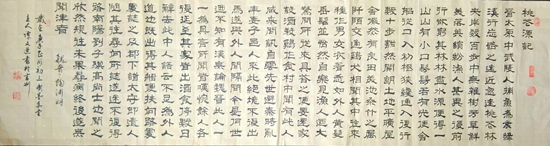 桃花源記
晉太原中武陵人捕魚為業緣
溪行忘路之遠近忽逢桃花林
夾岸數百步中無雜樹芳草鮮
美落英繽紛漁人甚異之復前
行欲窮其林林盡水源便得一
山山有小口髣髴若有光便舍
船從口入初極狹纔通人復行
數十步豁然開朗土地平曠屋
舍儼然有良田美池桑竹之屬
阡陌交通雞犬相聞其中往來
種作男女衣著悉如外人黃髮
垂髫並怡然自樂見漁人乃大
驚問所從來具答之便要還家
設酒殺雞作食村中聞有此人
咸來問訊自云先世避秦時亂
率妻子邑人來此絕境不復出
焉遂與外人間隔問今是何世
乃不知有漢無論魏晉此人一
一為具言所聞皆嘆惋餘人各
復延至其家皆出酒食停數日
辭去此中人語云不足為外人
道也既出得其船便扶向路處
處誌之及郡下詣太守即遣人
隨其往尋向所誌遂迷不復得
路南陽劉子驥高尚士也聞之
欣然規往未果尋病終後遂無
問津者
魏晉 陶淵明